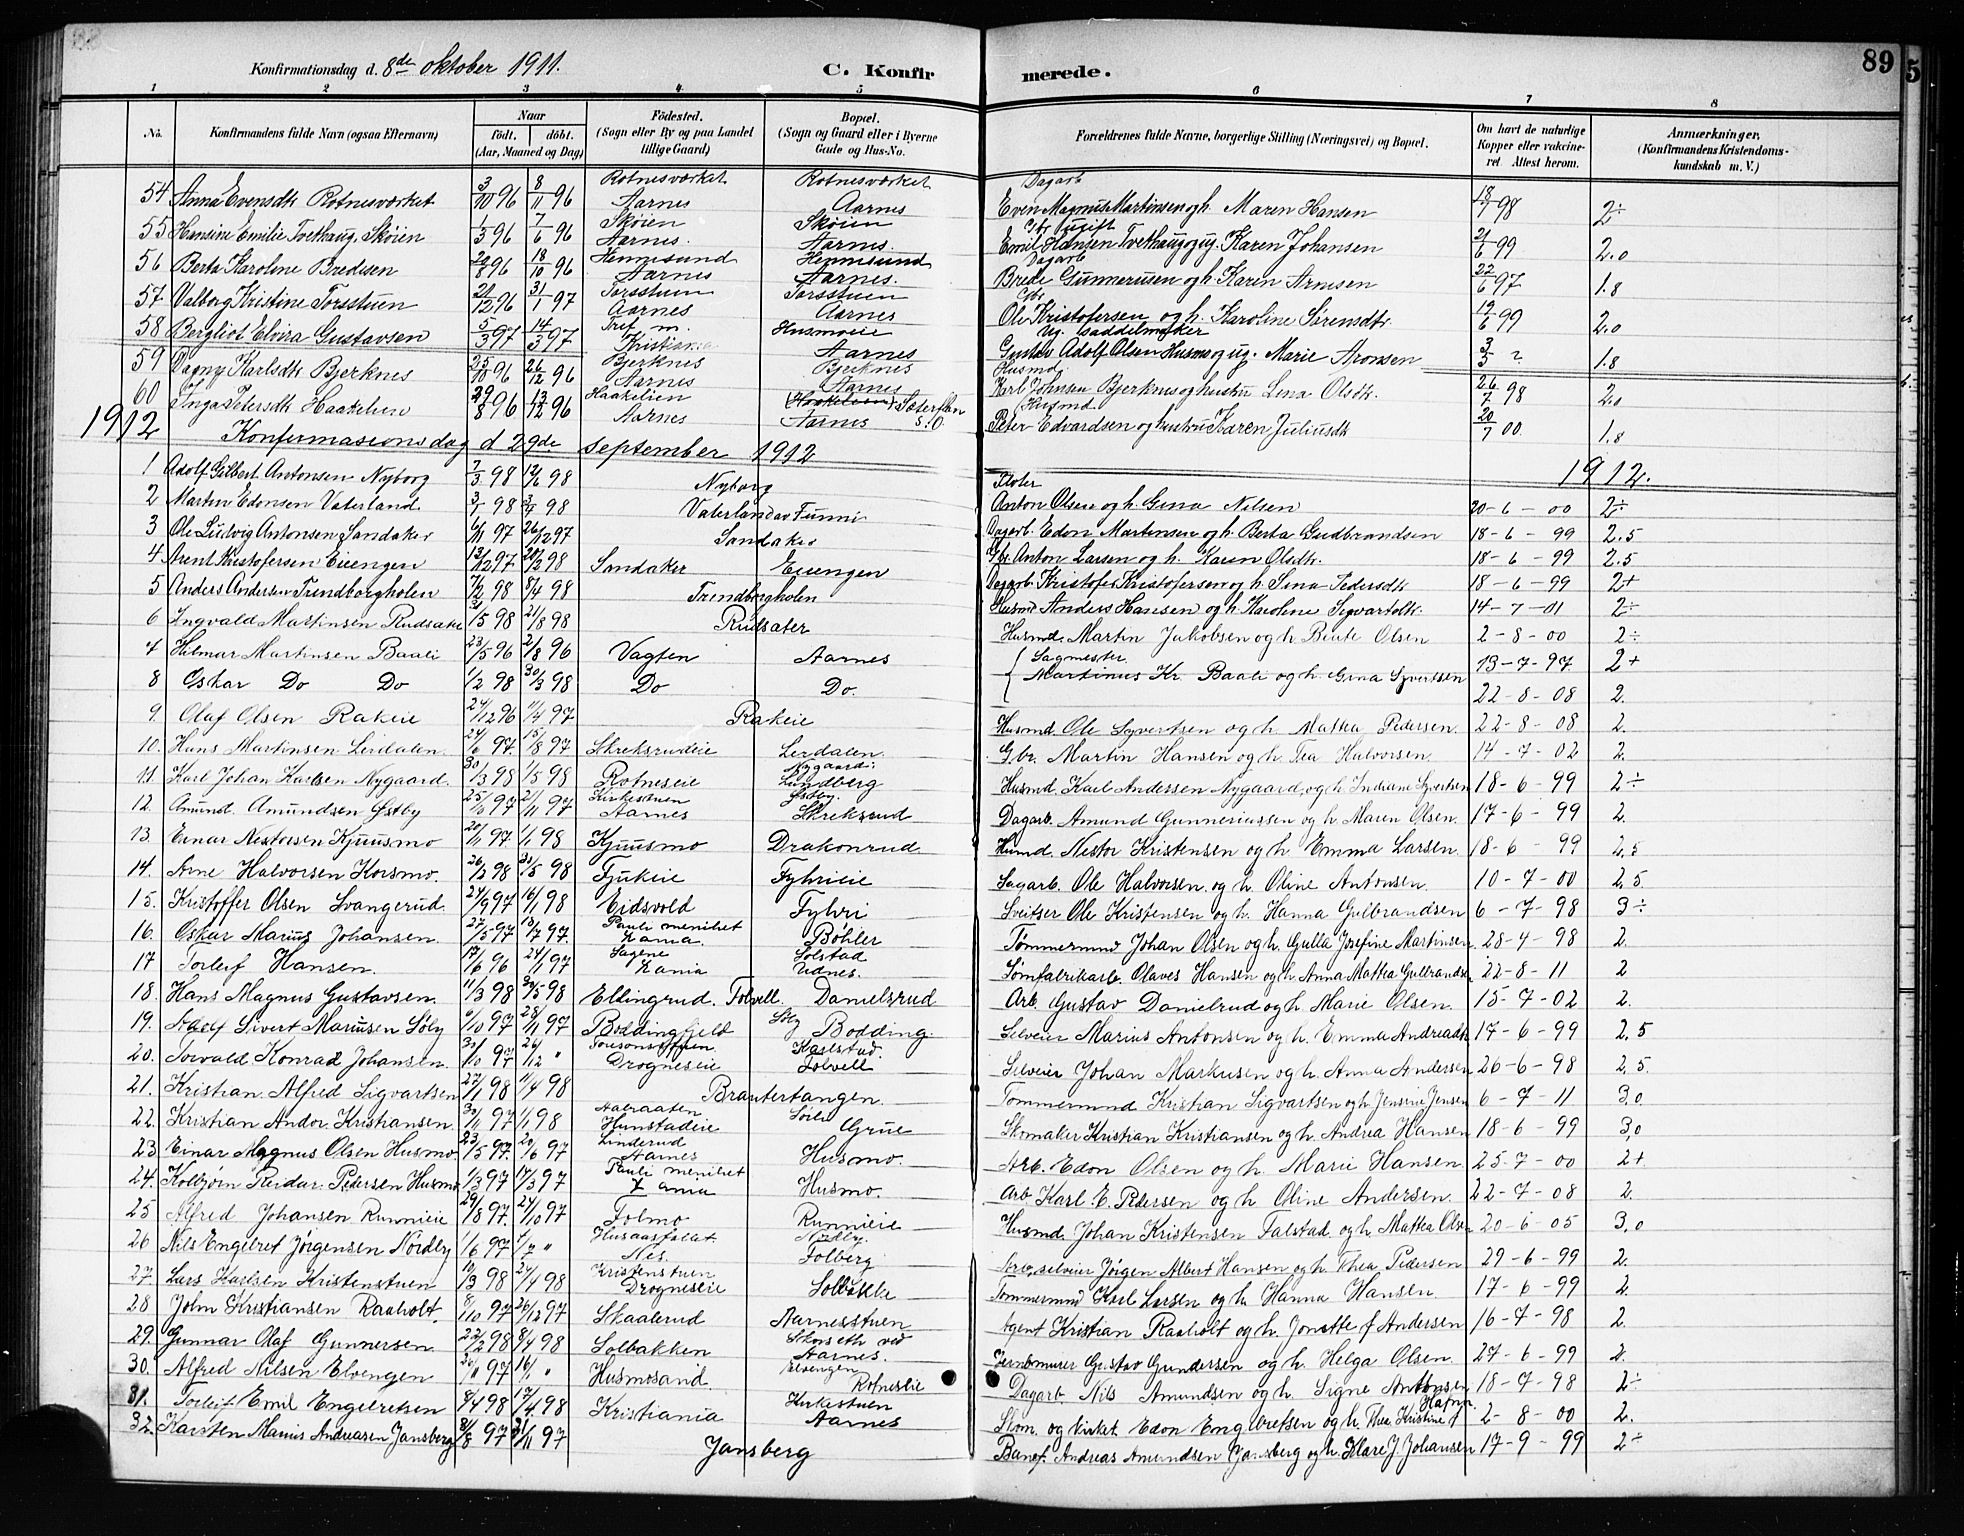 Konfirmationsdag d. 8de oktober 1911. C. Konfirmerede. 89
1 2 3 4 5 6 7 8
No. Konfirmandens fulde Navn (ogsaa Efternavn) Naar født. døbt. (Aar, Maaned og Dag) Fødested. (Sogn eller By og paa Landet tillige Gaard) Bopæl. (Sogn og Gaard eller i Byerne Gade og Hus-No. Forældrenes fulde Navne, borgerlige Stilling (Næringsvei) og Bopæl. Om havt de naturlige Kopper eller vakcineret. Attest herom. Anmærkninger, (Konfirmandens Kristendomskundskab m. V.)
54 Anna Evensdtr Rotnesværket 3/10 96 8/11 96 Rotnesværket Aarnes Rotnesværket Aarnes Dagarb Even Magnus Martinsen og h. Maren Hansen 18/7 98 2÷
55 Hansine Emilie Tvethaug, Skøien 1/3 96 7/6 96 Skøien Aarnes. Skøien Aarnes. Emil Hansen Tvethaug og ug. Karen Johansen 21/6 99 2.0
56 Berta Karoline Bredesen 20/8 96 18/10 96 Hennisund Aarnes Hennisund Aarnes. Dagarb Brede Gunnerusen og h. Karen Arnesen 22/6 97 1.8
57 Valborg Kristine Torsstuen 21/12 96 31/1 97 Torsstuen Aarnes Torsstuen Aarnes Gbr. Ole Kristofersen og h. Karoline Sørensdtr 19/6 99 2.0
58 Bergliot Elvira Gustavsen 5/3 97 14/3 97 Kristiania Husmoeie Aarnes Ug. saddelmaker Gustav Adolf Olsen Husmo og ug. Marie Aronsen 3/5 ? 1.8
59 Dagny Karlsdtr Bjerknes 25/10 96 26/12 96 Bjerknes Aarnes Bjerknes Aarnes Husmd Karl Johnsen Bjerknes og hustru Lina Olsdtr. 26/7 98 2.0
60 Inga Petersdtr Haakelien 29/8 96 13/12 96 Haakelien Aarnes Aarnes Husmd Peter Edvardsen og hustru Karen Juliusdtr 20/7 00 1.8
1912 Konfirmasionsdag d 29de september 1912 1912.
1 Adolf Gilbert Antonsen Nyborg 7/3 98 12/6 98 Nyborg Anton Olsen og h. Gena Nilsen 20-6-00 2÷
2 Martin Edonsen Vaterland 98 98 Vaterland av Funni Dagarb. Edon Martinsen og h. Berta Gudbrandsen 18-6-99 2.5
3 Ole Ludvig Antonsen Sandaker 6/11 97 26/12 97 Sandaker Gbr. Anton Larsen og h. Karen Olsdtr. 18-6-99 2.5
4 Arent Kristofersen Eiengen 13/12 97 20/2 98 Sandaker Eiengen Dagarb. Kristofer Kristofersen og h. Sina Pedersdtr 18-6-99 2+
5 Anders Andersen Trendborgholen 7/2 98 8/4 98 Trendborgholen Husmd Anders Hansen og h. Karoline Sigvartsdtr. 14-7-01 2÷
6 Ingvald Martinsen Rudsater 31/5 98 21/8 98 Rudsater Husmd. Martin Jakobsen og h. Beate Olsen 2-8-00 2÷
7 Hilmar Martinsen Baali 23/5 96 2/8 96 Vagten Aarnes Sagmester Martinus Kr. Baali og h. Gina Syvertsen 13-7-97 2+
8 Oskar Do Do 1/2 98 30/3 98 Do Do. 22-8-08 2.
9. Olaf Olsen Rakeie 24/12 96 11/4 97 Rakeie Husmd Ole Syvertsen og h. Mattea Pedersen 22-8-08 2.
10. Hans Martinsen Lerdalen 24/6 97. 15/8 97 Skreksrudeie Lerdalen. Gbr. Martin Hansen og h. Tea Halvorsen. 14-7-02 2.
11. Karl Johan Karlsen Nygaard. 30/3 98 1/5 98 Rotneseie Nygaard: Lundberg Husmd Karl Andersen Nygaard og h. Indiane Syvertsen 18-6-99 2÷
12. Amund Amundsen Østby 97 97 Kirkestuen Aarnes Østby. Skreksrud Dagarb. Amund Gunneriussen og h. Maren Olsen. 17-6-99 2.
13. Einar Nestorsen Kjuusmo 20/11 97 1/1 98 Kjuusmo Drakonrud Husmd. Nestor Kristensen og h. Emma Larsen. 18-6-99 2,5
14. Arne Halvorsen Korsmo. 26/2 98 31/5 98 Tjukeie Fyhrieie Sagarb. Ole Halvorsen og h. Oline Antonsen. 10-7-00 2,5
15. Kristoffer Olsen Svangerud. 24/9 97 16/1 98 Eidsvold Fyhri Sveitser Ole Kristensen og h. Hanna Gulbrandsen 6-7-98 3÷
16. Oskar Marius Johansen. 27/5 97 18/7 97. Pauli menihet Kania. Bøhler Tømmermnd Johan Olsen og h. Gulla Josefine Martinsen 28-4-98 2.
17 Torleif Hansen. 17/6 96 24/1 97 Sagene Kania Solstad Udnes. Sømfabrikarb. Olaves Hansen og h. Anna Mattea Gulbrandsen 22-8-11 2
18. Hans Magnus Gustavsen. 11/3 98 30/5 98 Ellingrud. Tolvell. Danielsrud Arb. Gustav Danielrud og h. Marie Olsen. 15-7-02 2.
19. Adolf Sivert Mariusen Solby 6/10 97 28/11 97 Boddingfjeld Solby Bodding. Selveier Marius Antonsen og h. Emma Andreasdtr 17-6-99 2,5
20. Torvald Konrad Johansen. 97 26/12 " Drogneseie Karlstad. Tolvell Selveier Johan Markusen og h. Anna Andersen 26-6-98 2,5
21. Kristian Alfred Sigvartsen 27/1 98 11/4 98 Brautertangen. Tømmermnd Kristian Sigvartsen og h. Jensine Jensen 6-7-11 3,0
22. Kristian Andor Kristiansen. 30/11 97 1/1 98 Hunstadeie Grue Skomaker Kristian Kristiansen og h. Andrea Hansen 18-6-99 3,0
23 Einar Magnus Olsen Husmo. 23/5 97. 20/6 97 Linderud Aarnes Husmo. Arb. Edon Olsen og h. Marie Hansen. 25-7-00 2+
24. Kolbjørn Reidar Pedersen Husmo 1/3 97 17/3 97 Pauli menihet Kania Husmo. Arb Karl E. Pedersen og h. Oline Andersen. 22-7-08 2.
25 Alfred Johansen Runnieie 29/8 97 24/10 97 Folmo Runnieie Husmd. Johan Kristensen Falstad og h. Mattea Olsen 20-6-05 3,0
26 Nils Engebret Jørgensen Nordby 1/6 97 4/7 " Nes. Nordby. Tolberg Arb. selveier Jørgen Albert Hansen og h. Thea Pedersen 29-6-99 2.
27. Lars Karlsen Kristenstuen 10/3 98 24/4 98 Kristenstuen Drogneseie Solbakke Tømmermnd Karl Larsen og h. Hanna Hansen 17-6-99 2
28 John Kristiansen Raaholt. 8/10 97 26/12 97 Skaalerud Aarnesstuen Agent Kristian Raaholt og h. Jonette f Andersen 16-7-98 2.
29. Gunnar Olaf Gunnersen. 22/2 98 8/4 98 Solbakken Skorseth ved Aarnes. Jernbmurer Gustav Gundersen og h. Helga Olsen. 27-6-99 2.
30. Alfred Nilsen Elvengen 97 " Husmosand. Elvengen Rotneseie Dagarb. Nils Amundsen og h. Signe Antonsen 18-7-98 2÷
31. Torleif Emil Engebretsen 8/4 98 17/4 98 Kristiania Kirkestuen Aarnes Skom. og virket. Edon Engebretsen og h. Thea Kristine f Hafnor 2-8-00 2.
32. Karsten Marius Andreasen Jansberg 31/8 97 21/11 97 Jansberg Banef. Andreas Amundsen Jansberg og h. Klare J. Johansen 17-9-99 2÷